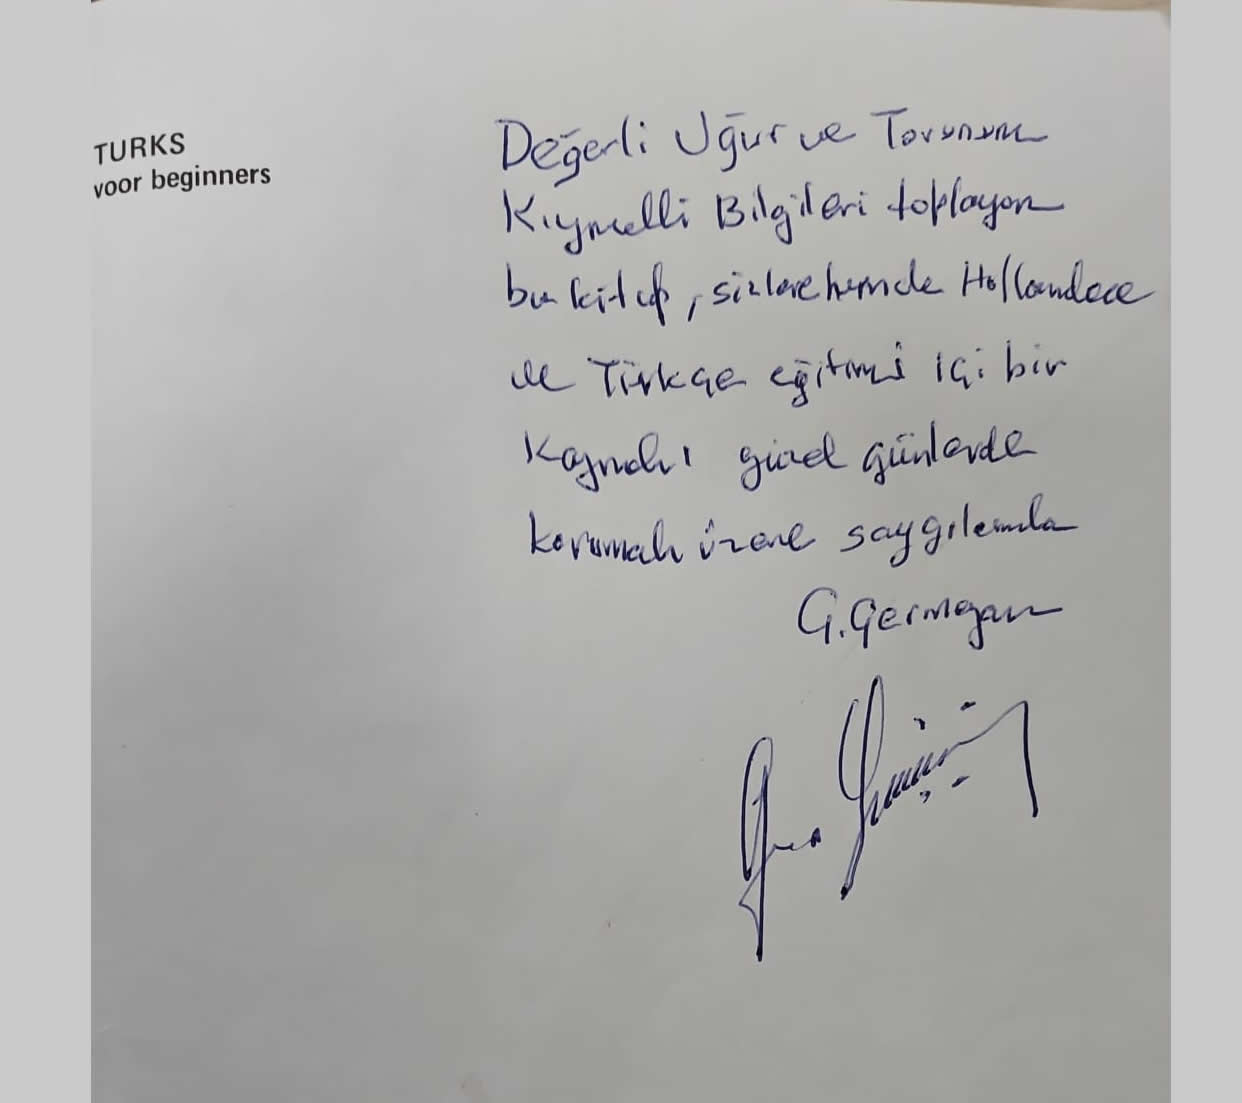 TURKS
voor beginners
Değerli Uğur ve Torunum
Kıymetli Bilgileri toplayan
bu kitap, sizlere hemde Hollandaca
ve Türkçe eğitimi içi bir
Kaynaktı güzel günlerde
korumak üzere saygılarımla
G. Germeyan